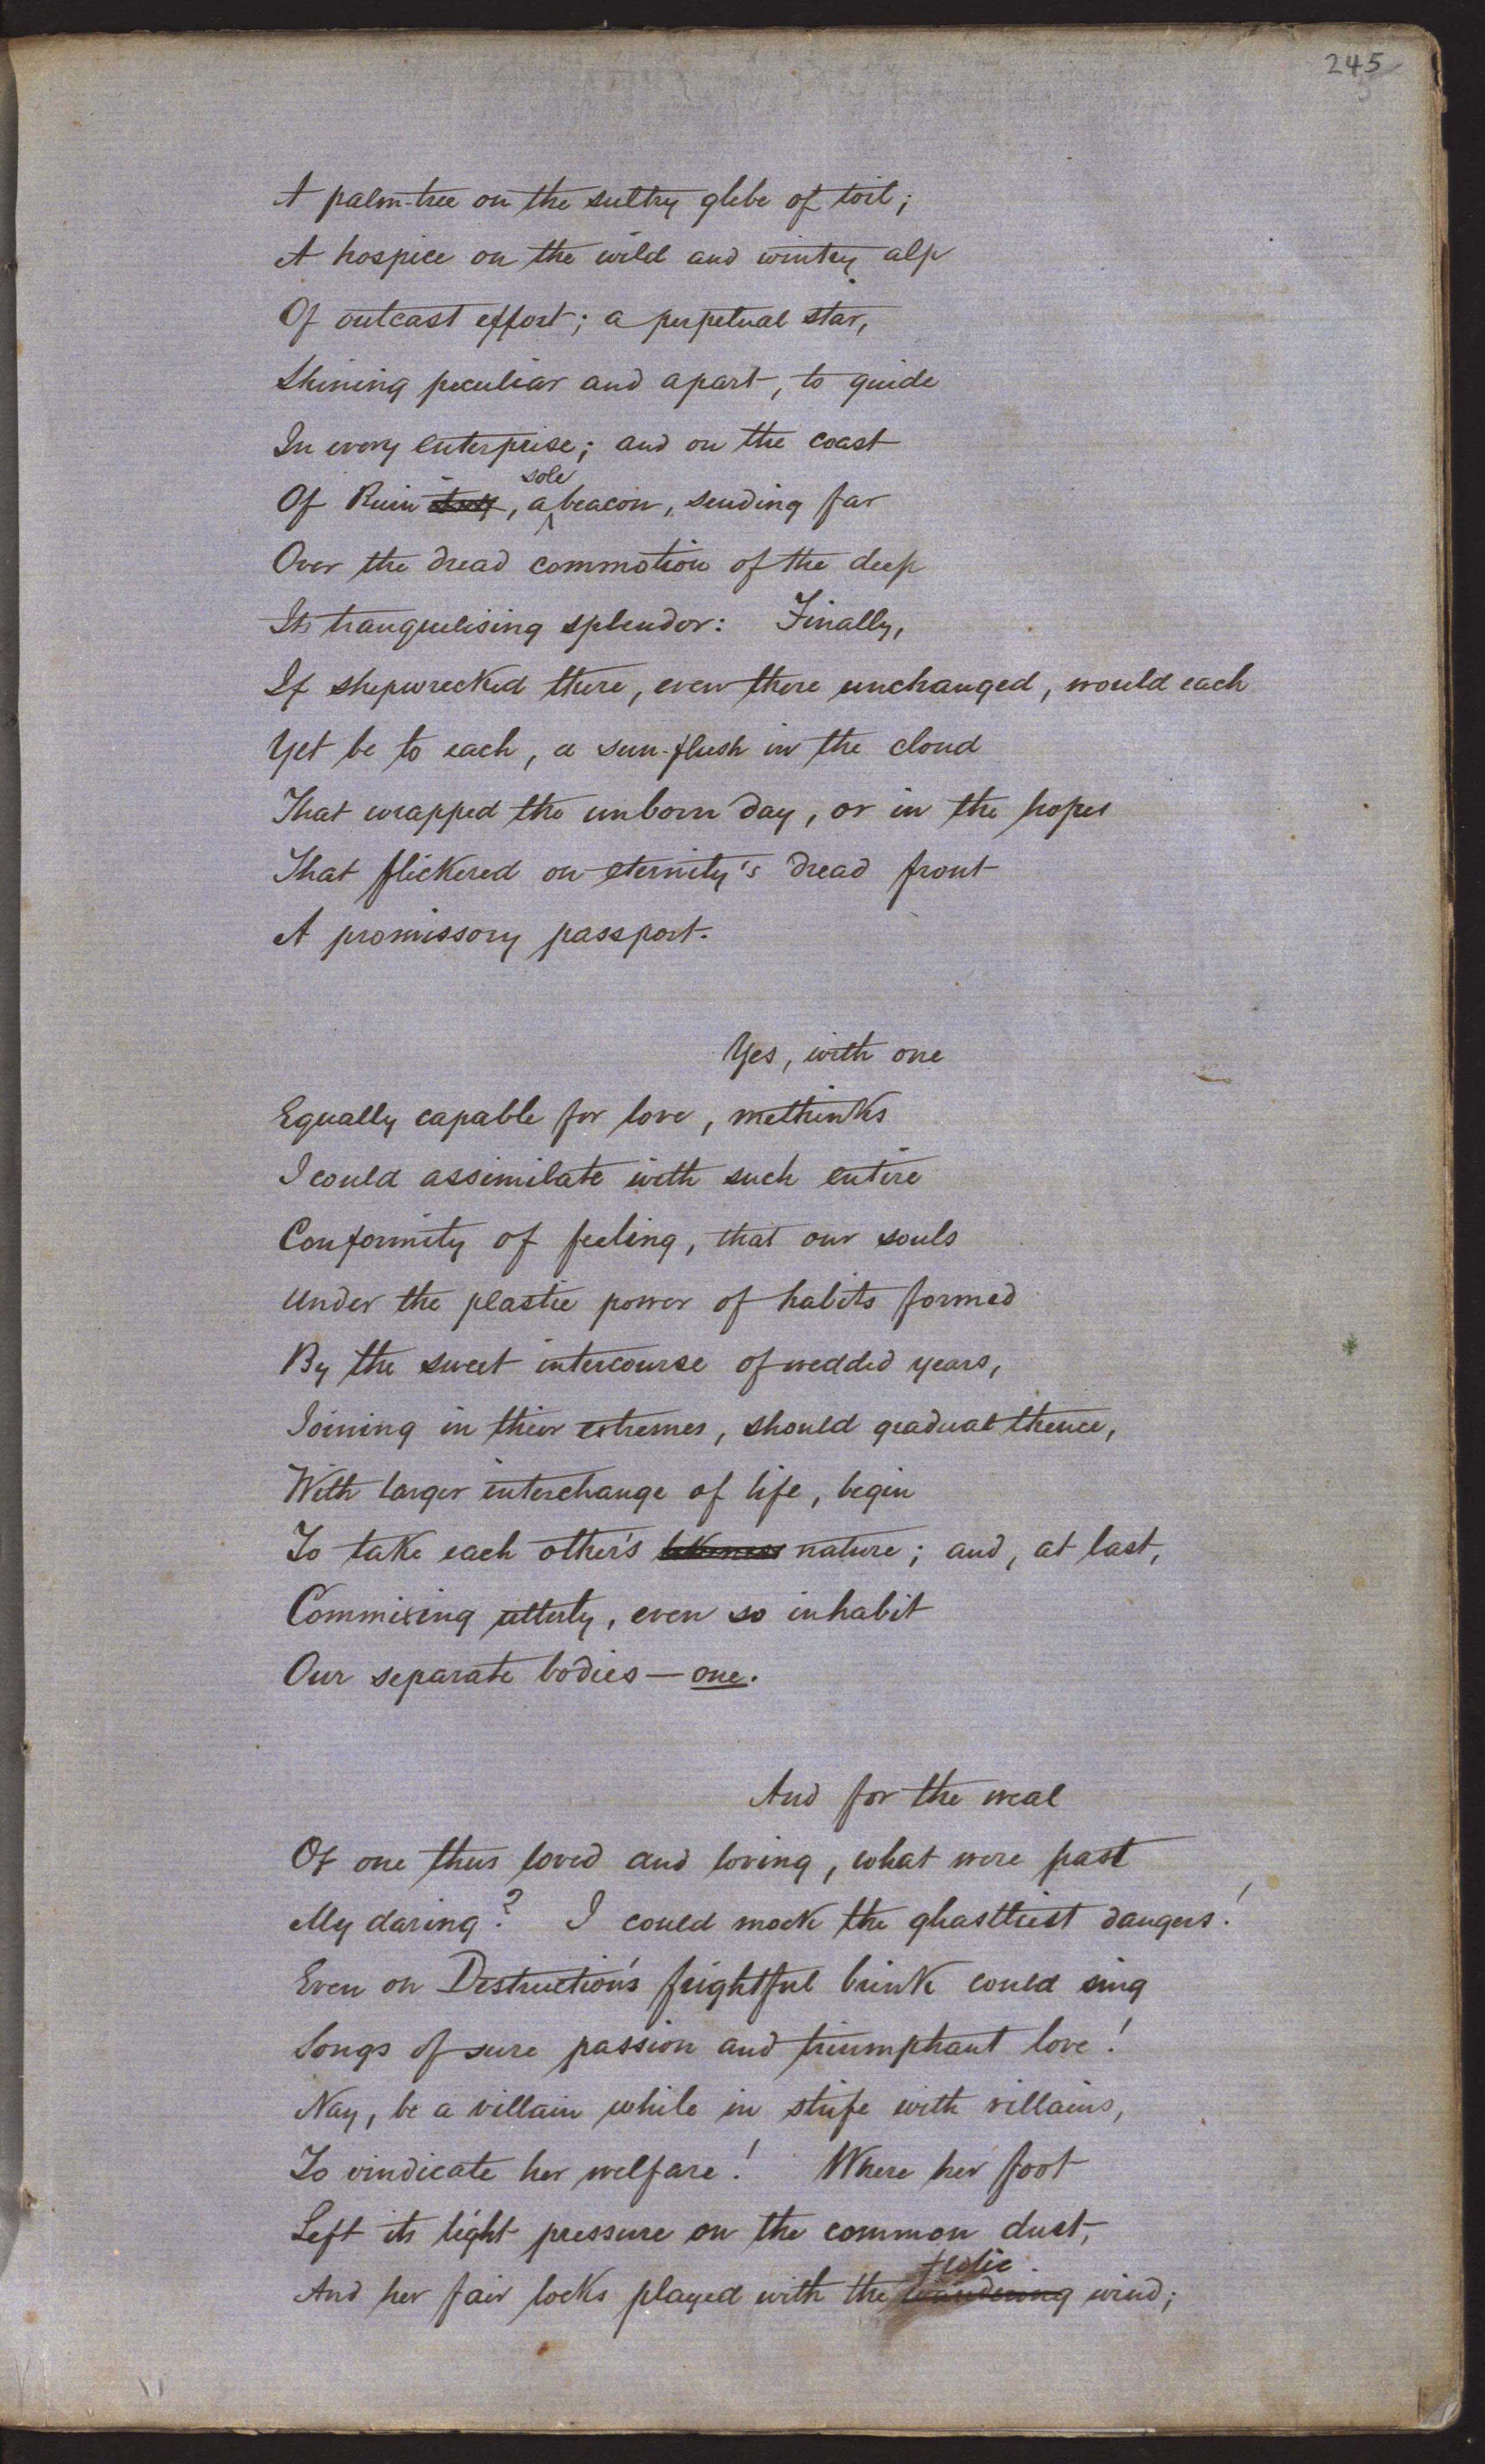 245
A palm-tree on the sultry glebe of toil;
A hospice on the wild and wintry alp
Of outcast effort; a perpetual star,
Shining peculiar and apart, to guide
In every enterprise; and on the coast
sole
Of Ruin, a beacon, sending far
Over the dread commotion of the deep
Its tranquilising splendor: Finally,
If shipwrecked there, even there unchanged, would each
Yet be to each, a sun-flush in the cloud
That wrapped the unborn day, or in the hopes
That flickered on eternity's dread front
A promissory passport.
Yes, with one
Equally capable for love, methinks
I could assimilate with such entire
Conformity of feeling, that our souls
Under the plastic power of habits formed
By the sweet intercourse of wedded years,
Joining in their extremes, should gradual thence,
With larger interchange of life, begin
To take each other's likeness nature; and, at last,
Commixing utterly, even so inhabit
Our separate bodies—one.
And for the weal
Of one thus loved and loving, what were past
My daring? I could mock the ghastliest dangers!
Even on Destruction's frightful brink could sing
Songs of sure passion and triumphant love!
Nay, be a villain while in strife with villains,
To vindicate her welfare! Where her foot
Left its light pressure on the common dust,
frolic
And her fair locks played with the wandering wind;